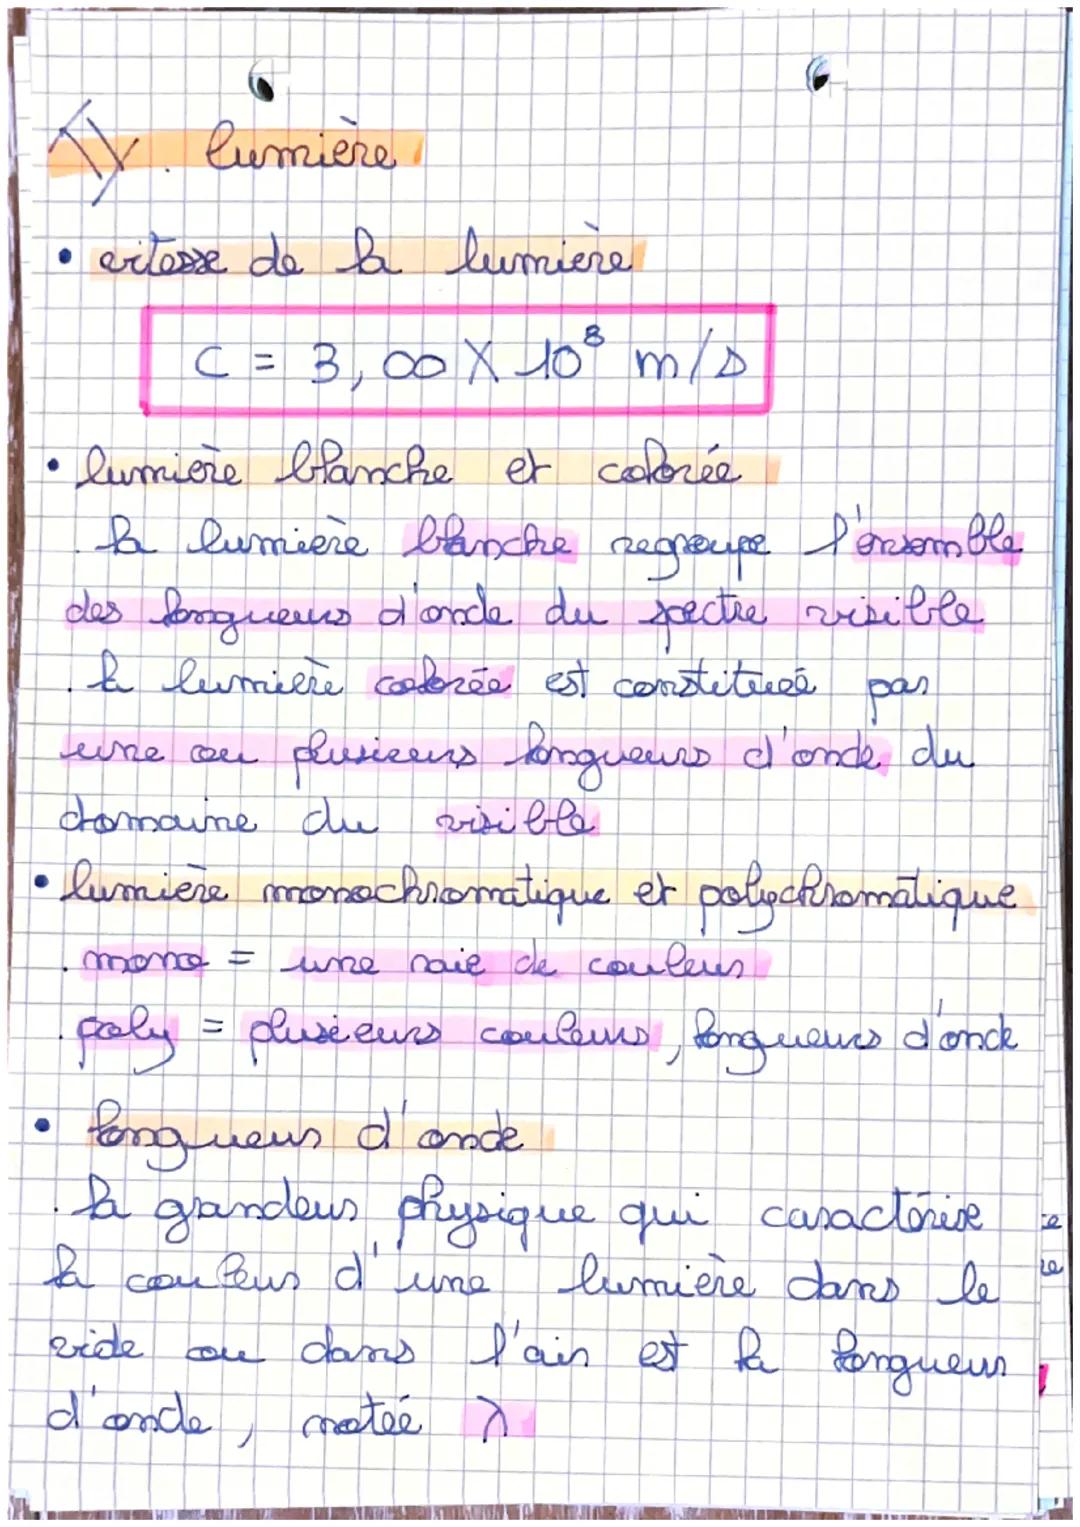 I). lumière
• vitesse de la lumière
C = 3,00 X 10⁸ m/s
• lumière blanche et colorée
. la lumière blanche regroupe l'ensemble
des longueurs d'onde du spectre visible
. la lumière colorée est constituée par
une ou plusieurs longueurs d'onde du
domaine du visible
• lumière monochromatique et polychromatique
. mono = une raie de couleur
. poly = plusieurs couleurs, longueurs d'onde
• longueur d'onde
. la grandeur physique qui caractérise
la couleur d'une lumière dans le
vide ou dans l'air est la longueur
d'onde, notée λ